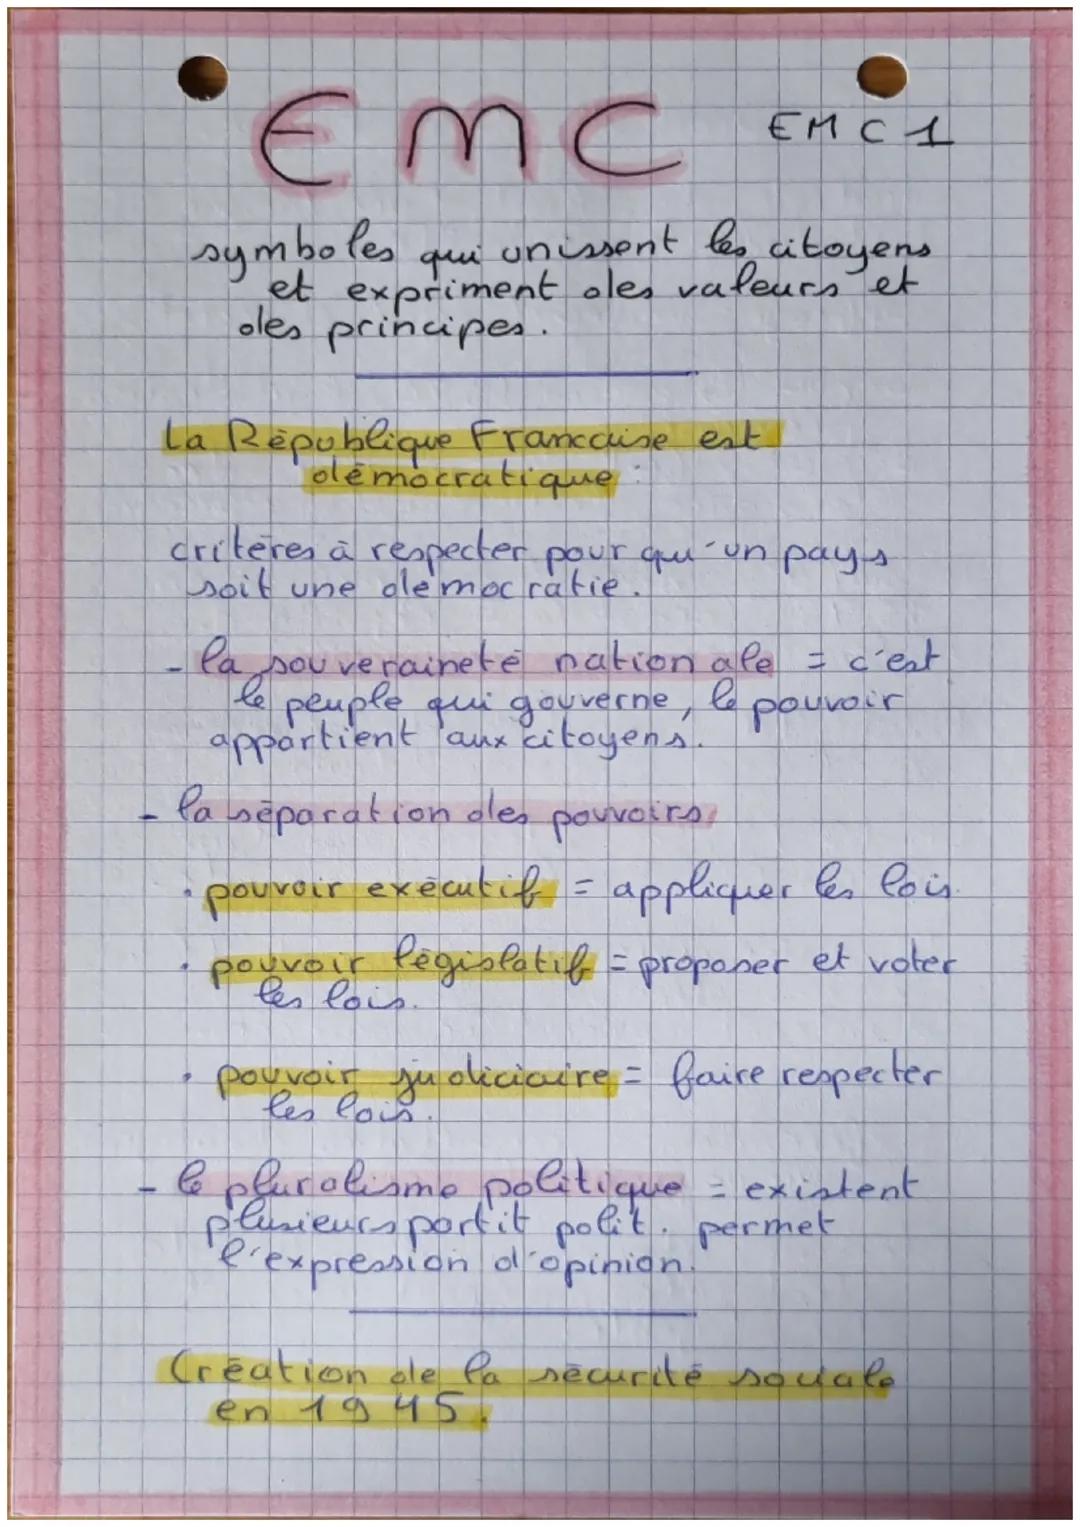 EMC
EMC1
symboles qui unissent les citoyens
et expriment des valeurs et
des principes.
La République Francaise est
démocratique :
critères à respecter pour qu'un pays
soit une démocratie.
- la souveraineté nationale = c'est
le peuple qui gouverne, le pouvoir
appartient aux citoyens.
- la séparation des pouvoirs
• pouvoir exécutif = appliquer les lois.
• pouvoir législatif = proposer et voter
les lois.
• pouvoir judiciaire = faire respecter
les lois.
- le pluralisme politique = existent
plusieurs partit polit. permet
l'expression d'opinion.
Création de la sécurité sociale
en 1945.